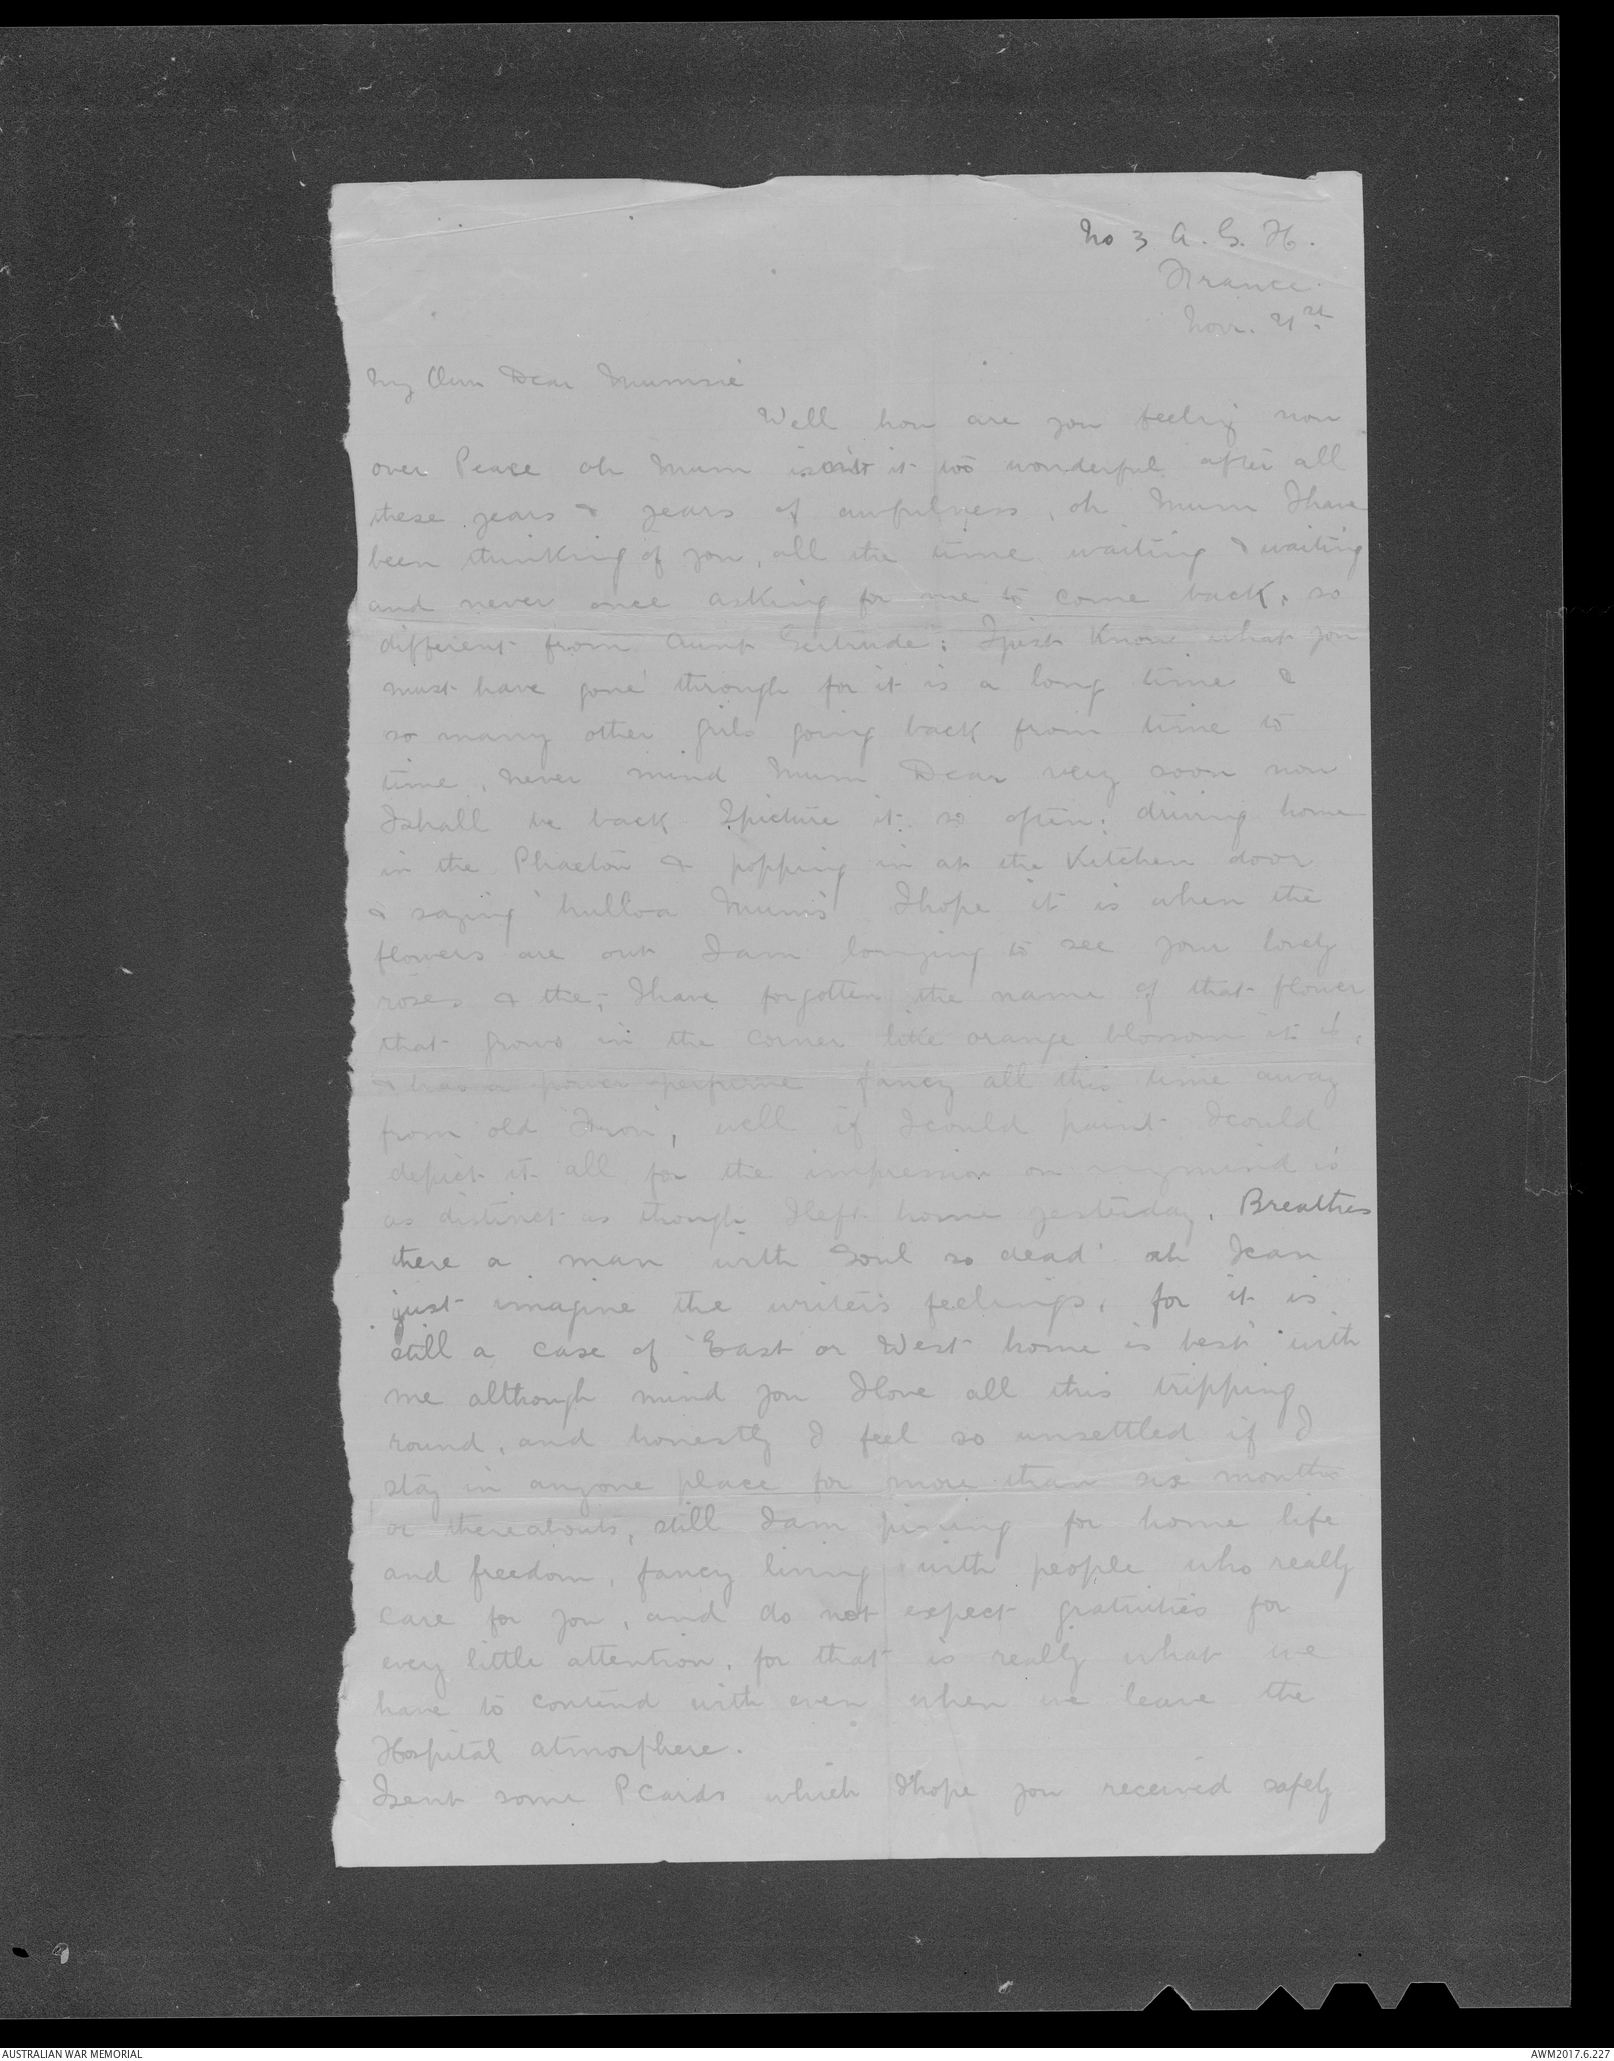 No 3 A. G. H.
France.
Nov. 21st
My Own Dear Mumsie
Well how are you feeling now
over Peace oh Mum is'nt it too wonderful after all
these years & years of awfulness, oh Mum I have
been thinking of you, all the time waiting & waiting
and never once asking for me to come back, so
different from Aunt Gertrude: I just know what you
must have gone through for it is a long time &
so many other girls going back from time to
time, never mind Mum Dear very soon now
I shall be back I picture it so often: driving home
in the Phaeton & popping in at the Kitchen door
& saying 'hulloa Mums' I hope it is when the
flowers are out I am longing to see your lovely
roses & the, I have forgotten the name of that flower
that grows in the corner like orange blossom it is,
& has a perfume fancy all this time away
from old, well if I could paint I could
depict it all for the impression on my mind is
as distinct as though I left home yesterday. Breathes
there a man with Soul so dead' oh I can
just imagine the writer's feelings, for it is
still a case of 'East or West home is best' with
me although mind you I love all this tripping
round, and honestly I feel so unsettled if I
stay in anyone place for more than six months
or thereabouts, still I am pining for home life
and freedom, fancy living with people who really
care for you, and do not expect gratuities for
every little attention, for that is really what we
have to contend with even when we leave the
Hospital atmosphere.
I sent some P Cards which I hope you received safely
AUSTRALIAN WAR MEMORIAL
AWM2017.6.227